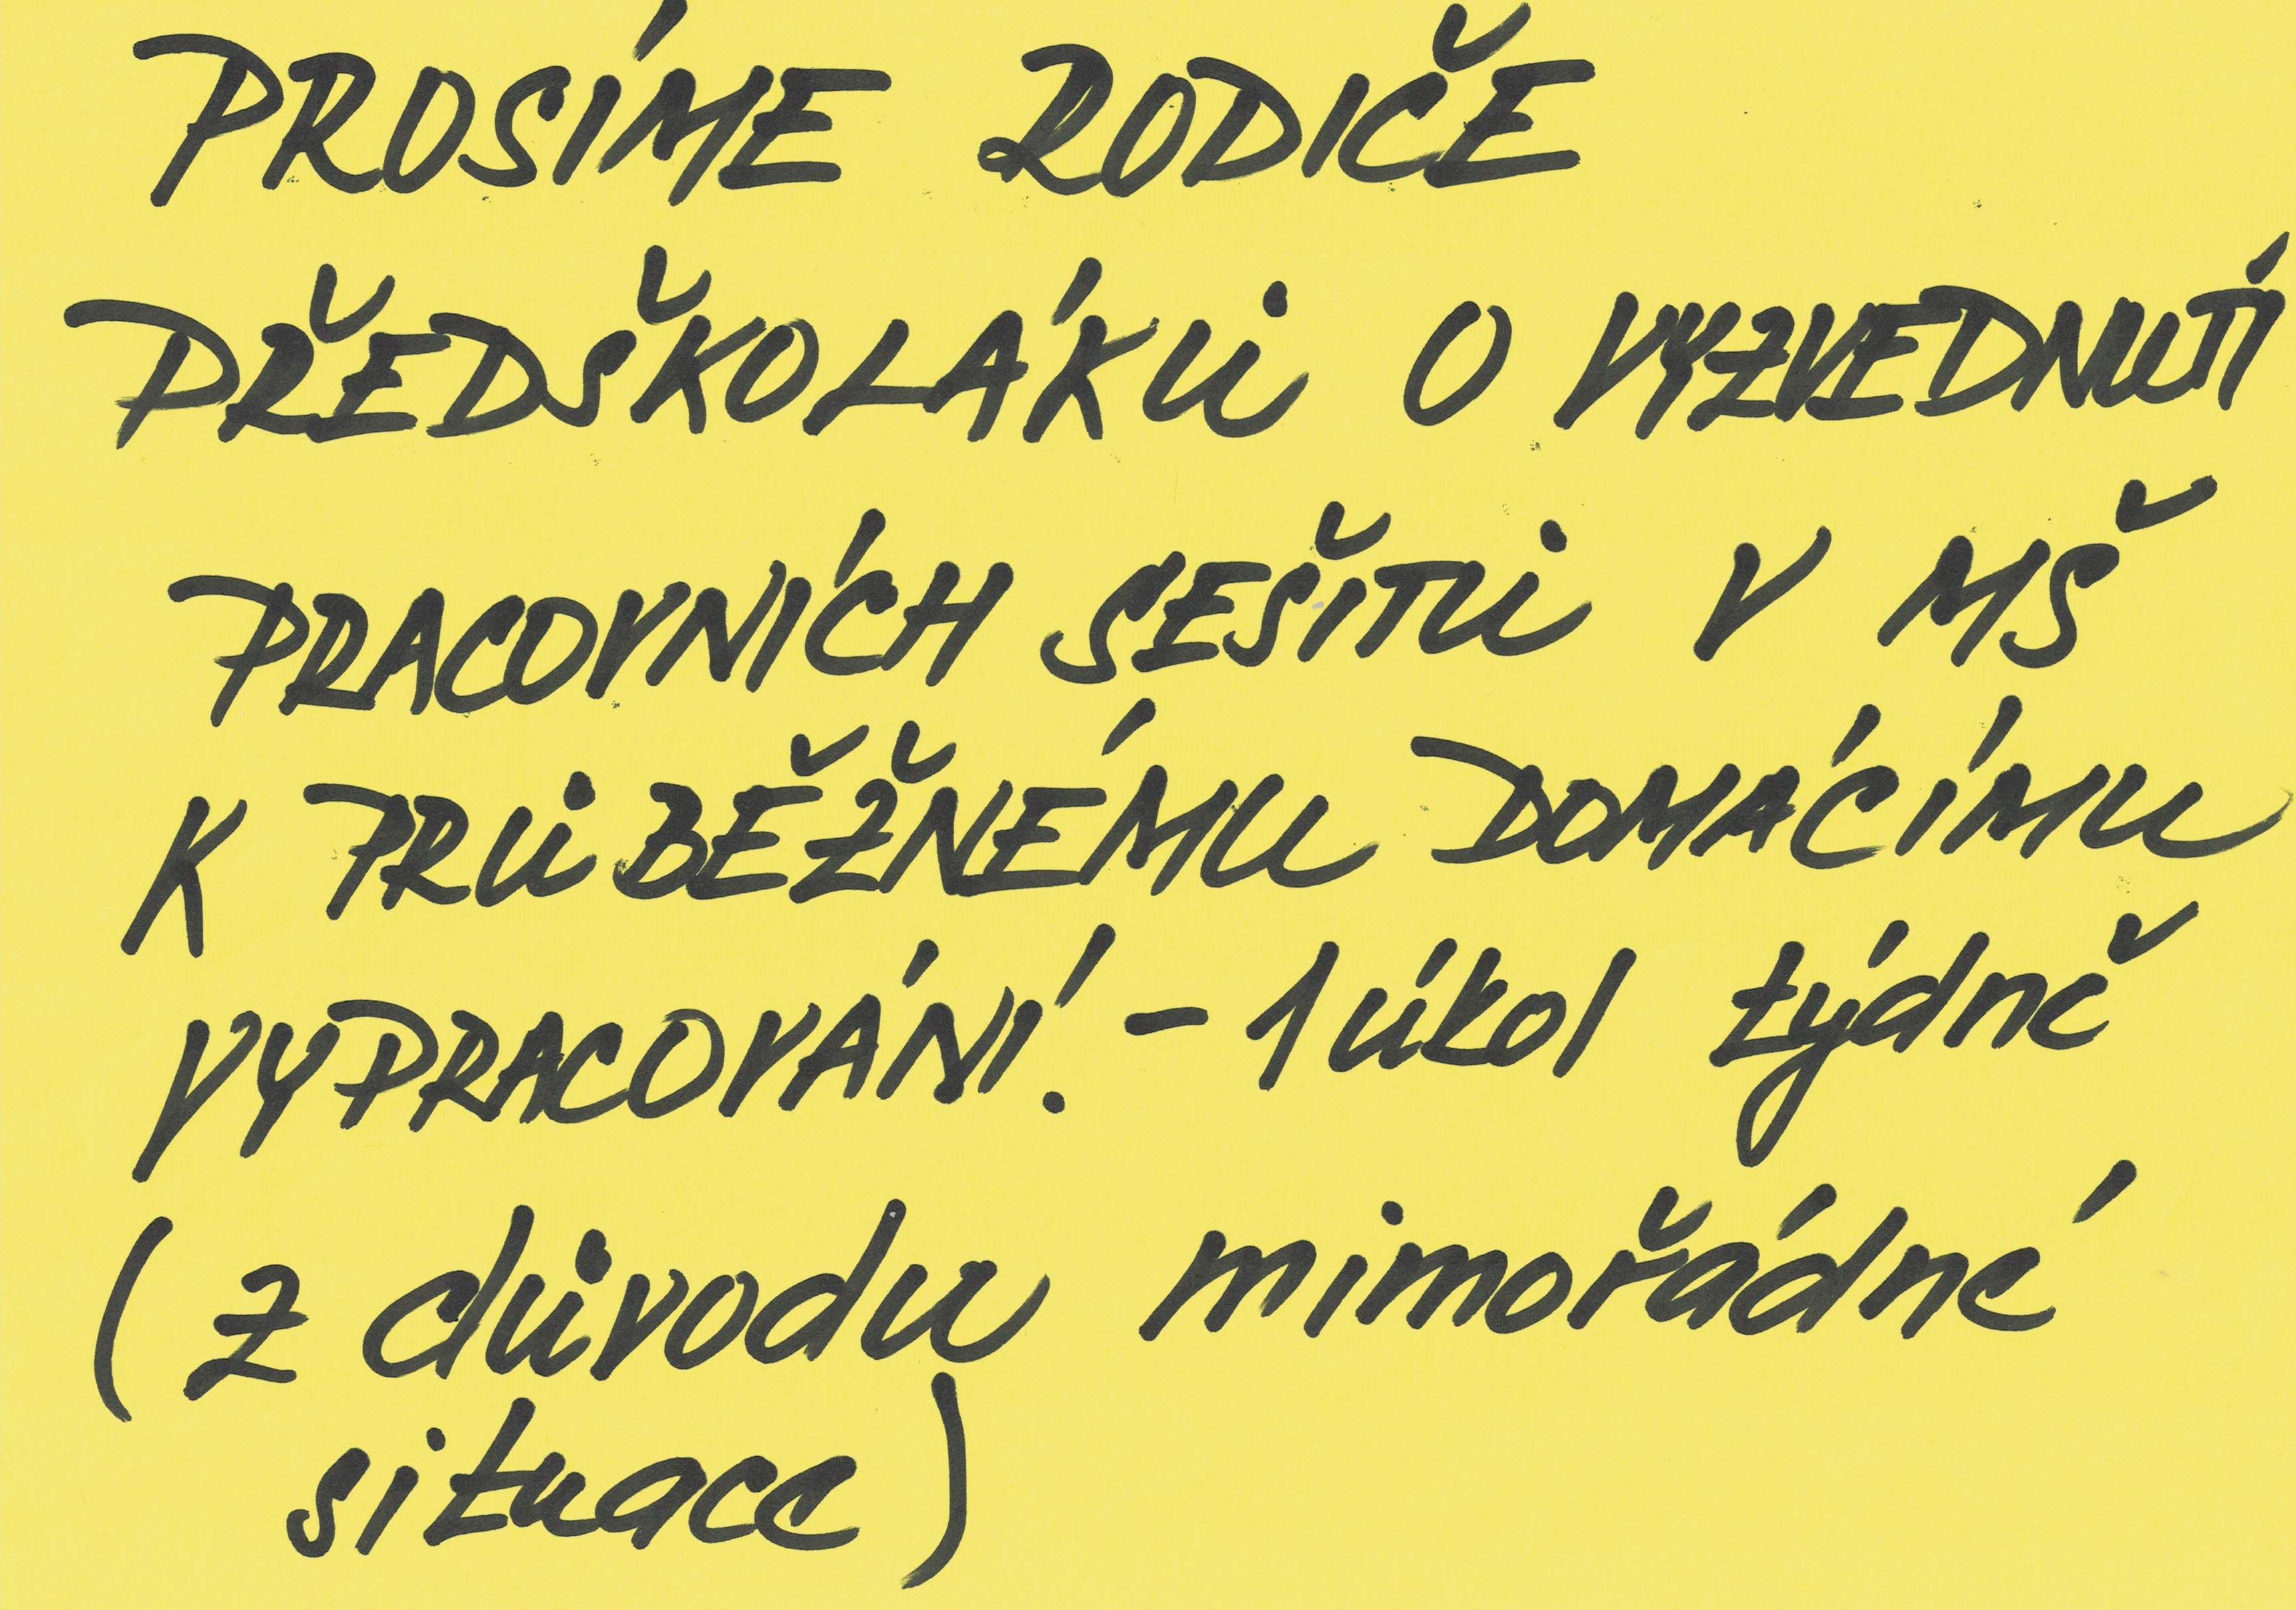 PROSÍME RODIČE
PŘEDŠKOLÁKŮ O VYZVEDNUTÍ
PRACOVNÍCH SEŠITŮ V MŠ
K PRŮBĚŽNÉMU DOMÁCÍMU
VYPRACOVÁNÍ! - 1 úkol týdně
(z důvodu mimořádné
situace)